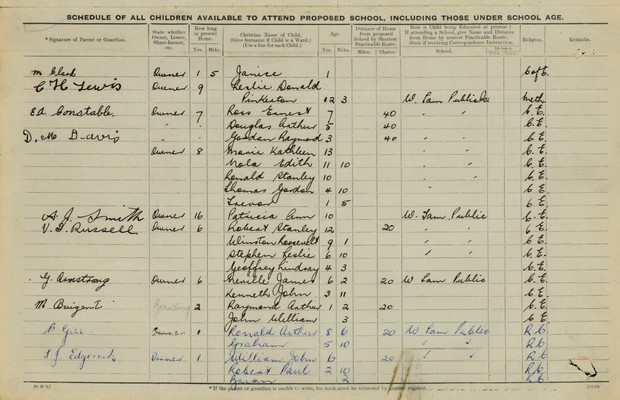 SCHEDULE OF ALL CHILDREN AVAILABLE TO ATTEND PROPOSED SCHOOL, INCLUDING THOSE UNDER SCHOOL AGE.
* Signature of Parent or Guardian. State whether Owner, Lessee, Share-farmer, etc. How long in present home. Yrs. Mths. Christian Name of Child. (Give Surname if Child is a Ward.) (Use a line for each Child.) Age. Yrs. Mths. Distance of Home from proposed School by Shortest Practicable Route. Miles. Chains. How is Child being Educated at present? If attending a School, give Name and Distance from Home by nearest Practicable Route. State if receiving Correspondence Instruction. School. Religion. Remarks.
M Clark Owner 1 5 Janice 1 C of E.
C H Lewis Owner 9 Leslie Donald
Pinkerton 12 3 W. Pam Public Meth.
EA. Constable. Owner 7 Ross Earnest 7 40 " " C. E.
" " Douglas Arthur 5 40 C. E.
" " Gordon Raymond 3 40 " " C. E.
D. M Davis Owner 8 Marie Kathleen 13 " " C. E.
Nola Edith 11 10 " " C. E.
Ronald Stanley 10 " " C. E.
Thomas Gordon 4 10 " C. E.
Trevor 1 5 C. E.
A. J. Smith Owner 16 Patricia Ann 10 W. Pam Public C. E.
V. J. Russell. Owner 6 Robert Stanley 12 20 " " C. E.
Winston Roosevelt 9 1 " " C. E.
Stephen Leslie 6 10 " " C. E.
Geoffrey Lindsay 4 3 C. E.
G. Armstrong Owner 6 Neville James 6 2 20 W Pam Public C. E.
Kenneth John 3 11 C. E.
M. 2 Raymond Arthur 1 2 20 C. E.
John William 3 C. E.
Owner 1 Ronald Arthur 8 6 20 W Pam Public R. C.
Graham 5 10 " " R. C.
Owner 1 William John 6 " " R. C.
Robert Paul 2 10 R. C.
2 R. C.
* If the parent or guardian is unable to write, his mark must be witnessed by another resident.